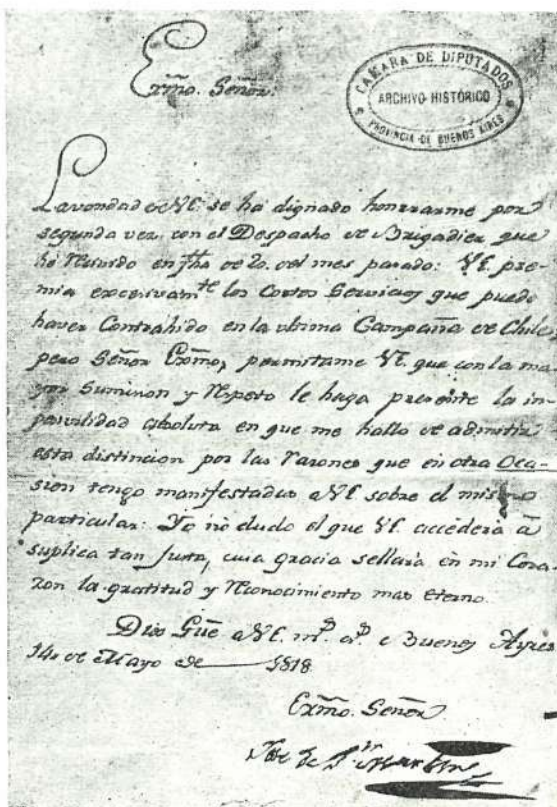 Exmo. Señor.
CAMARA DE DIPUTADOS
ARCHIVO HISTÓRICO
PROVINCIA DE BUENOS AIRES
La vondad de VE. se ha dignado honrrarme por
segunda vez con el Despacho de Brigadier que
hé recivido en fha de 20. del mes pasado: VE. pre-
mia excesivamte los Cortos Servicios que puedo
haver Contrahido en la ultima Campaña de Chile,
pero Señor Exmo, permitame VE. que con la ma-
yor Sumision y respeto le haga presente la im-
posivilidad absoluta en que me hallo de admitir
esta distincion por las razones que en otra Oca-
sion tengo manifestadas a VE sobre el mismo
particular: Yo no dudo el que VE. accederá á
suplica tan Justa, cuia gracia sellará en mi Cora-
zon la gratitud y reconocimiento mas eterno.
Dios Gue a VE. ms. as. Buenos Ayres
14 de Mayo de 1818
Exmo. Señor
Jose de Sn Martin